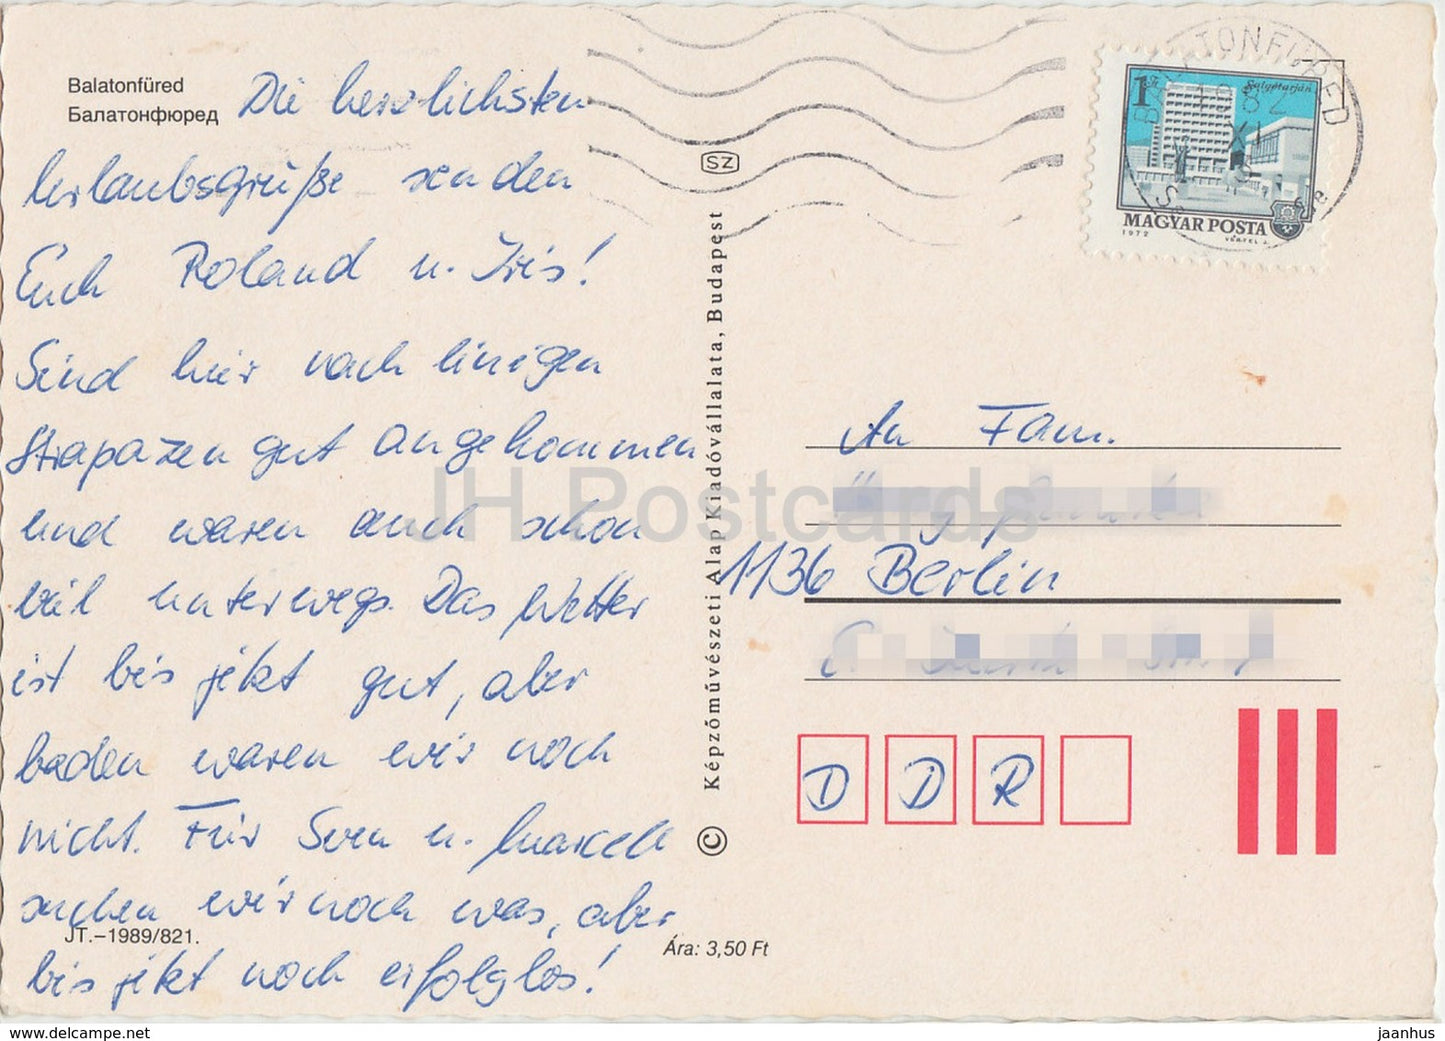 Balatonfüred
Балатонфюред
Die herzlichsten
Urlaubsgrüße senden
Euch Roland u. Iris!
Sind hier nach einigen
Strapazen gut angekommen
und waren auch schon
viel unterwegs. Das Wetter
ist bis jetzt gut, aber
baden waren wir noch
nicht. Für Sven u. Marcell
suchen wir noch was, aber
bis jetzt noch erfolglos!
JT.–1989/821.
Ára: 3,50 Ft
SZ
© Képzőművészeti Alap Kiadóvállalata, Budapest
1 Ft
Salgótarján
MAGYAR POSTA
1972
VERTEL J.
BALATONFÜRED
An Fam.
1136 Berlin
D D R
JH Postcards
www.delcampe.net
jaanhus